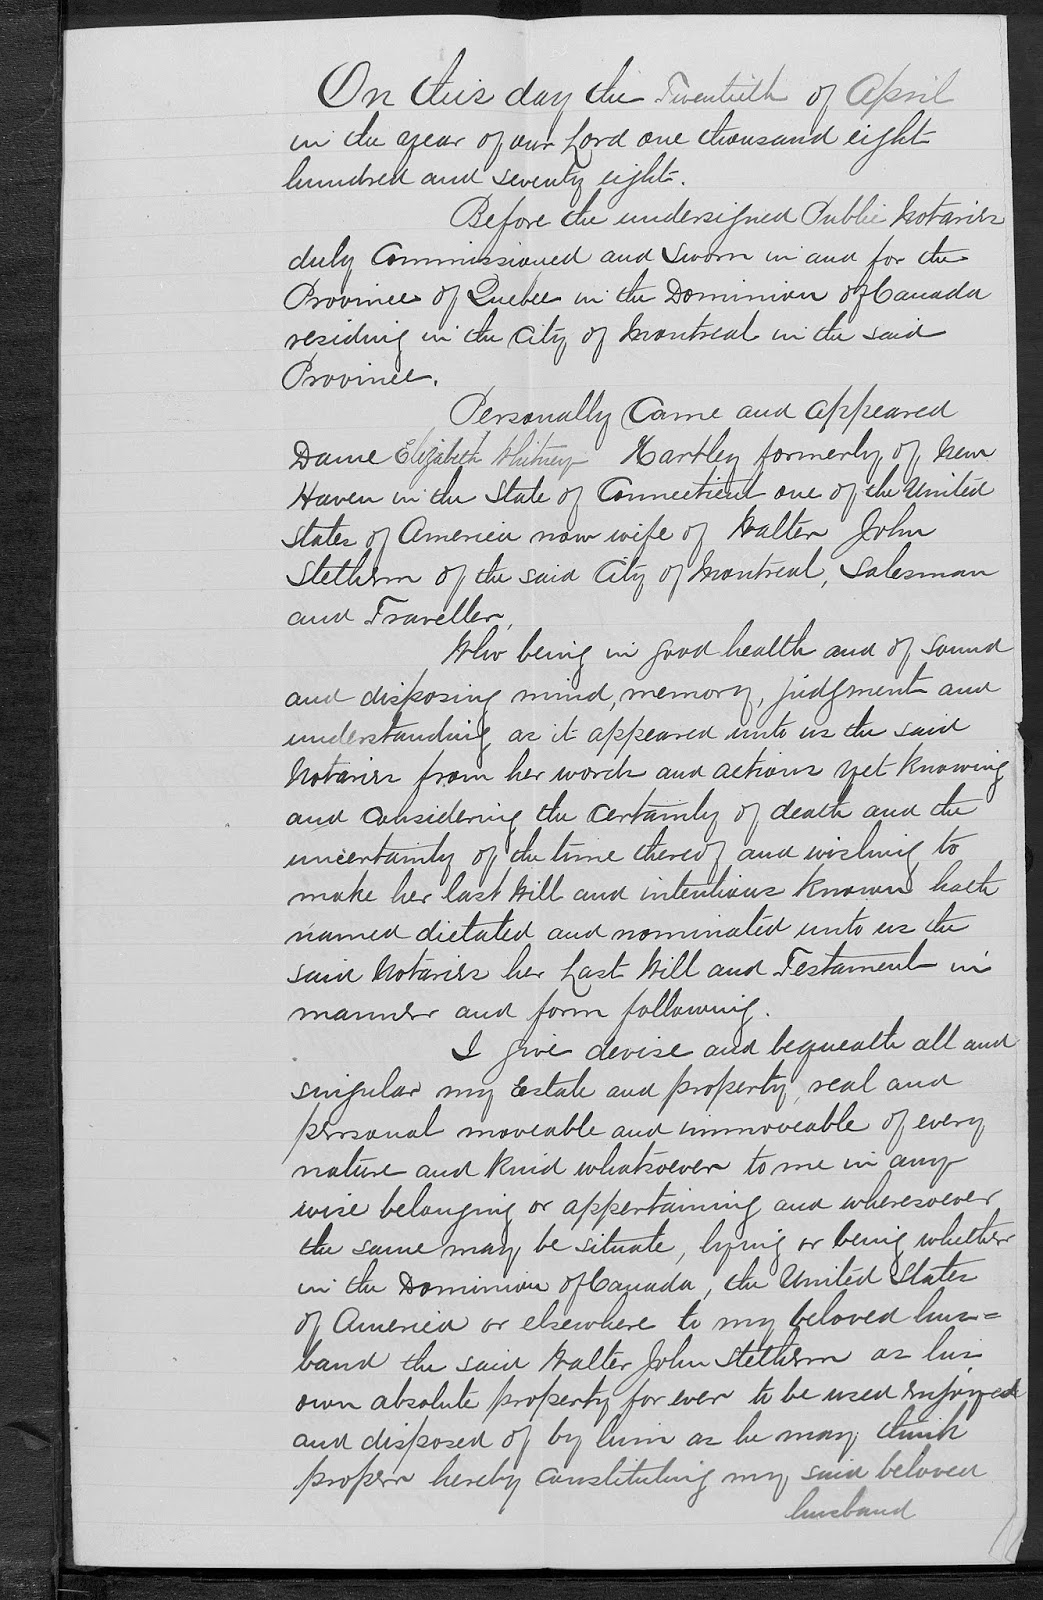 On this day the Twentieth of April
in the year of our Lord one thousand eight
hundred and seventy eight.
Before the undersigned Public Notaries
duly Commissioned and Sworn in and for the
Province of Quebec in the Dominion of Canada
residing in the City of Montreal in the said
Province.
Personally Came and appeared
Dame Elizabeth Whitney Hartley formerly of New
Haven in the State of Connecticut one of the United
States of America now wife of Walter John
Stethem of the said City of Montreal, Salesman
and Traveller,
Who being in good health and of sound
and disposing mind, memory, judgment and
understanding as it appeared unto us the said
Notaries from her words and actions yet knowing
and considering the certainty of death and the
uncertainty of the time thereof and wishing to
make her last Will and intentions known hath
named dictated and nominated unto us the
said Notaries her Last Will and Testament in
manner and form following.
I give devise and bequeath all and
singular my Estate and property, real and
personal moveable and immoveable of every
nature and kind whatsoever to me in any
wise belonging or appertaining and wheresoever
the same may be situate, lying or being whether
in the Dominion of Canada, the United States
of America or elsewhere to my beloved hus=
band the said Walter John Stethem as his
own absolute property for ever to be used enjoyed
and disposed of by him as he may think
proper hereby constituting my said beloved
husband